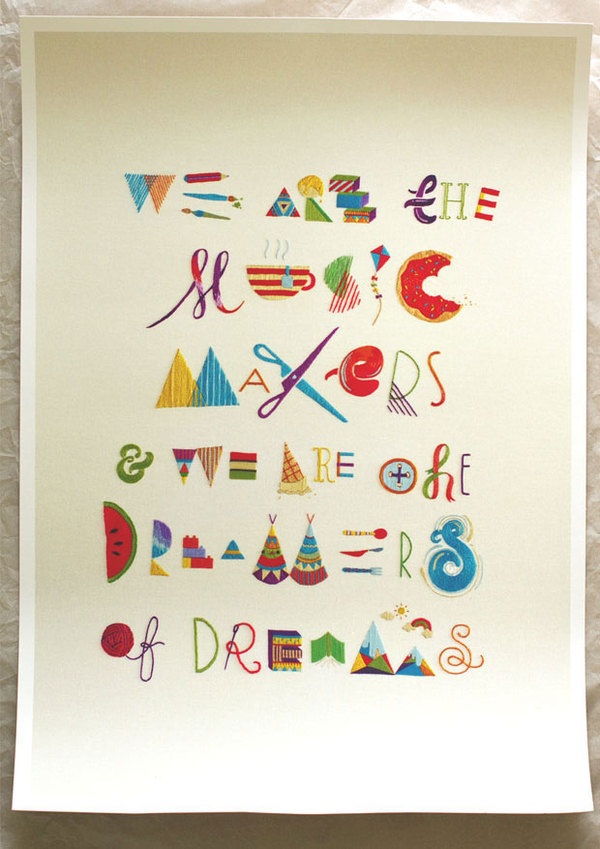 WE ARE tHE
MUSIC
MAKERS
& WE ARE the
DREAMERS
of DREAMS